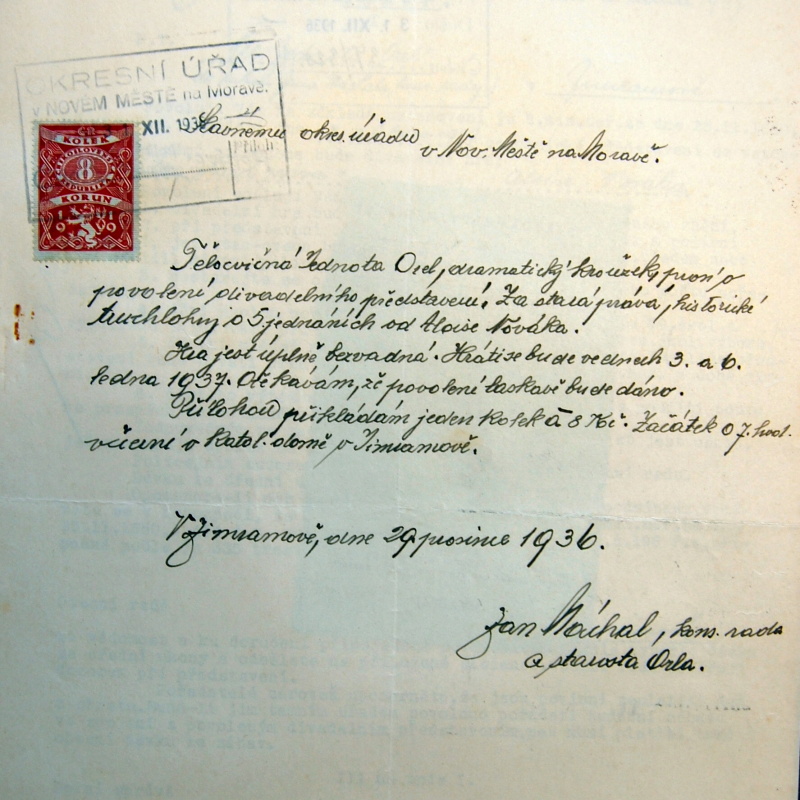 OKRESNÍ ÚŘAD
v NOVÉM MĚSTĚ na Moravě.
XII. 1936
KOLEK
8
KORUN
Slavnému okres. úřadu
v Nov. Městě na Moravě.
Tělocvičná Jednota Orel, dramatický kroužek, prosí o
povolení divadelního představení. Za stará práva, historické
o 5 jednáních od Aloise Nováka.
Hra jest úplně bezvadná. Hráti se bude ve dnech 3. a 6.
ledna 1937. Očekávám, že povolení laskavě bude dáno.
Přílohou přikládám jeden kolek á 8 Kč. Začátek o 7. hod.
večerní v katol. domě v Jimramově.
V Jimramově, dne 29 prosince 1936.
Jan Máchal, kons. rada
a starosta Orla.